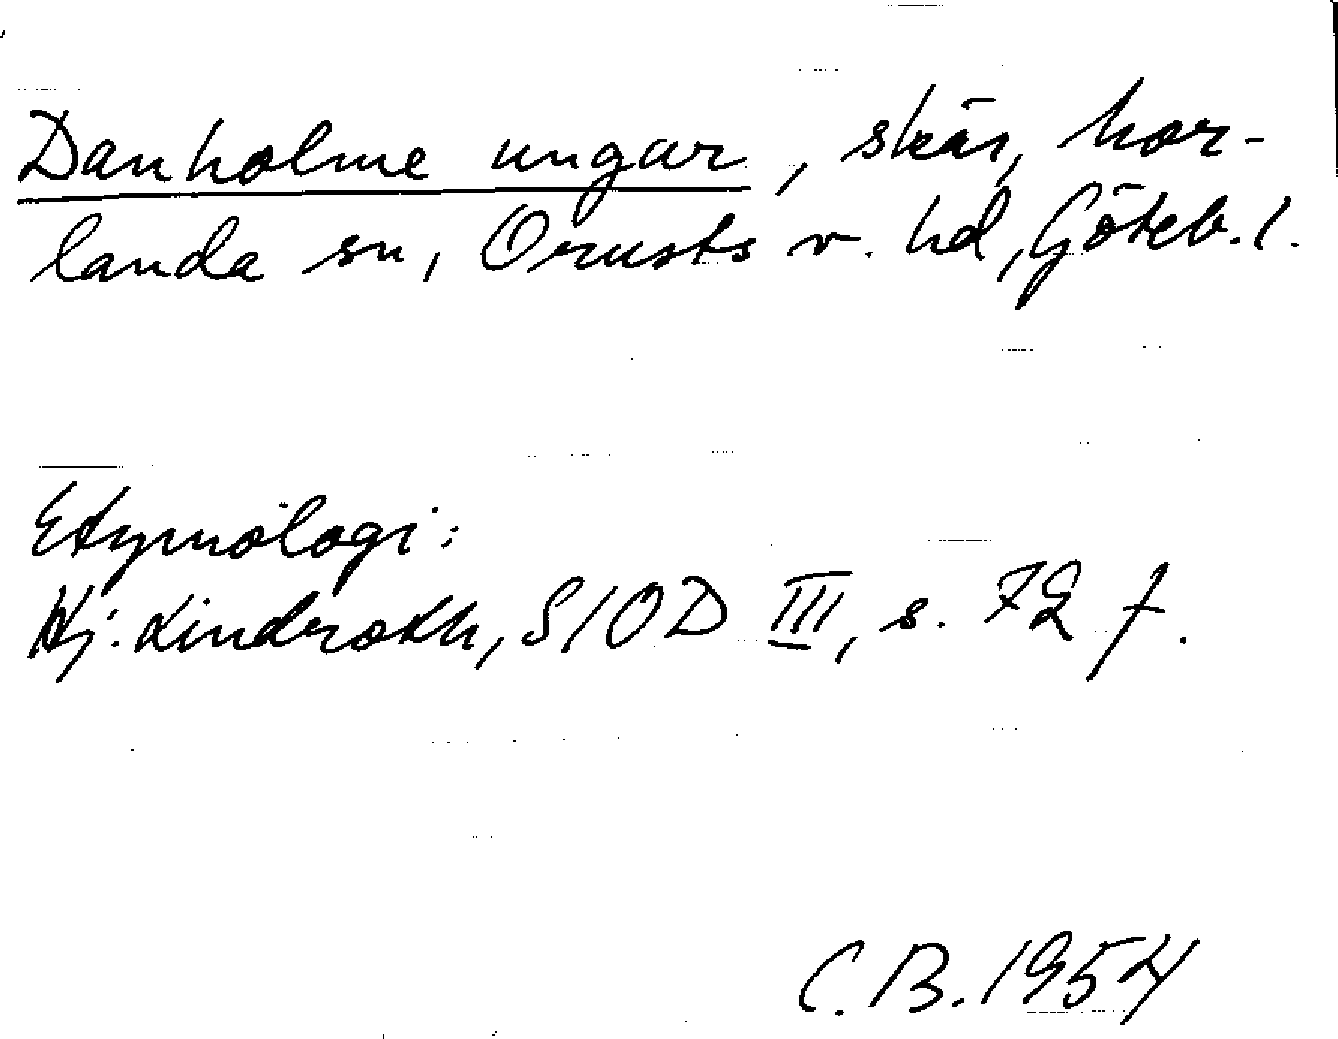 Danholme ungar, skär, Mor-
landa sn, Orusts v. hd, Göteb. l.
Etymologi:
Hj. Lindroth, SIOD III, s. 72 f.
C. B. 1954